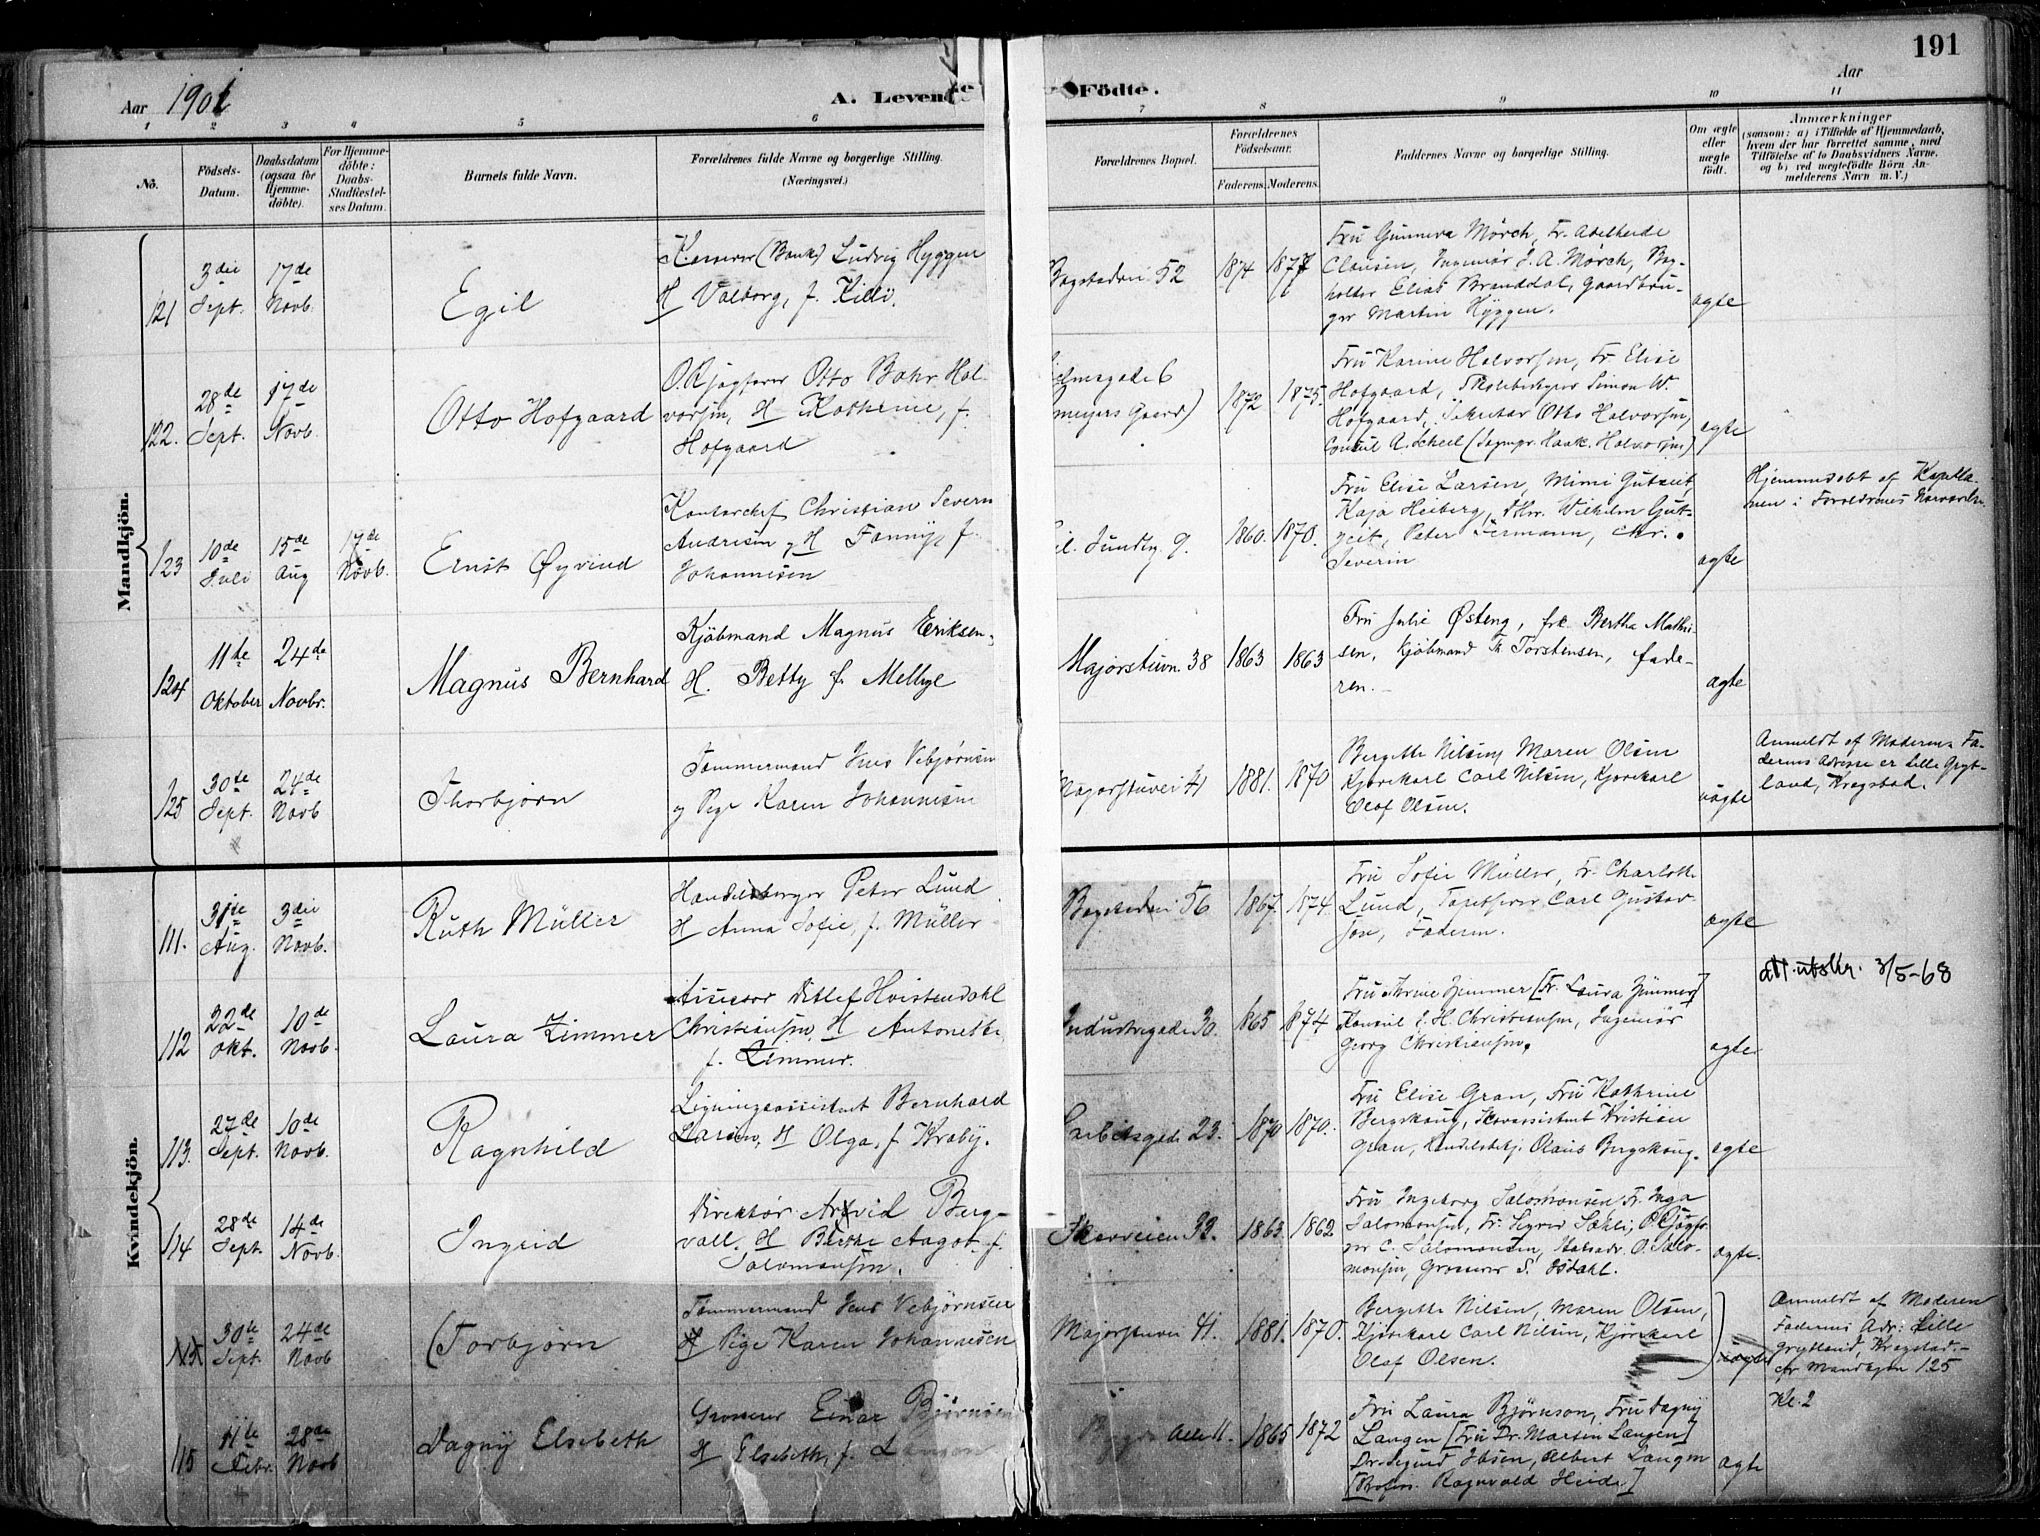 191
Aar 1901
A. Levende Födte.
Aar
1 2 3 4 5 6 7 8 9 10 11
No.
Födsels-
Datum.
Daabsdatum
(ogsaa for
Hjemme-
döbte).
For Hjemme-
döbte:
Daabs-
Stadfæstel-
ses Datum.
Barnets fulde Navn.
Forældrenes fulde Navne og borgerlige Stilling.
(Næringsvei.)
Forældrenes Bopæl.
Forældrenes
Födselsaar.
Faderens. Moderens.
Faddernes Navne og borgerlige Stilling.
Om ægte
eller
uægte
födt.
Anmærkninger
(saasom: a) i Tilfælde af Hjemmedaab,
hvem der har forrettet samme, med
Tilföielse af to Daabsvidners Navne,
og b) ved uægtefödte Börn An-
melderens Navn m. V.)
Mandkjön.
121
3die
Sept.
17de
Novb.
Egil
Kasserer (Bank) Ludvig Hyggen
H Valborg, f. Killi
Bogstadvei 52
1874 1877
Fru Gunneva Mørch, Fr. Adelheide
Clausen, Ingeniør J. A. Mørch, Bog-
holder Elias Branddal, Gaardbru-
ger Martin Hyggen.
ægte
122.
28de
Sept.
17de
Novb.
Otto Hofgaard
O.R.sagfører Otto Bahr Hal-
vorsen, H Kathrine, f.
Hofgaard
elmsgade 6
meyers Gaard)
1872 1875.
Fru Karine Halvorsen, Fr. Elise
Hofgaard, Skolebestyrer Simon W.
Hofgaard, Sekretær Otto Halvorsen,
Consul A. Scheel (Sogнepr. Haak. Halvorsen)
ægte
123
10de
Juli
15de
Aug
17de
Novb.
Ernst Øyvind
Kontorchef Christian Severin
Andresen, H Fanny, f.
Johannesen
il. Sundtsg. 9.
1860. 1870.
Fru Elise Larsen, Mimi Gutzeit,
Kaja Heiberg, Hr. Wilhelm Gut-
zeit, Peter Fermann, Chr.
Severin
ægte
Hjemmedøbt af Kapella-
nen i Forældrenes Nærværelse
124
11te
Oktober
24de
Novbr.
Magnus Bernhard
Kjøbmand Magnus Eriksen,
H. Betty f. Melbye
Majorstuvn. 38
1863 1863
Fru Julie Østeng, frk. Bertha Mathi-
sen, Kjøbmand Th Torstensen, fade-
ren.
ægte
125
30te
Sept.
24de
Novb
Thorbjørn
Tømmermand Jens Vebjørnsen
og Pige Karen Johannesen
Majorstuvei 41
1881. 1870
Bergitte Nilsen, Maren Olsen
Kjørekarl Carl Nilsen, Kjørekarl
Olaf Olsen.
uægte
Anmeldt af Moderen. Fa-
derens Adresse er Lille Gryt-
land, Kragstad.
Kvindekjön.
111.
31te
Aug.
3die
Novb.
Ruth Müller
Handelsborger Peter Lund
H Anna Sofie, f. Müller
Bogstadvei 56
1867. 1874.
Fru Sofie Müller, Fr. Charlotte
Lund, Tapetserer Carl Gustav-
son, Faderen.
ægte
att. utskr. 3/5-68
112
22de
Okt.
10de
Novb.
Laura Zimmer
Assessor Ditlef Hvistendahl
Christiansen, H Antonette
f. Zimmer.
Industrigade 30.
1865 1874
Fru Thrine Zimmer [Fr. Laura Zimmer]
Konsul E. H. Christiansen, Ingeniør
Georg Christiansen.
ægte
113.
27de
Sept.
10de
Novb.
Ragnhild
Ligningsassistent Bernhard
Larsen, H Olga, f. Kraby.
arbitsgade 23.
1870 1870.
Fru Elise Gran, Fru Kathrine
Bergskaug, Kristian
Gran, Handelsbetj. Olaus Bergskaug.
ægte
114
28de
Sept.
14de
Novb.
Ingrid
Direktør Arvid Berg-
vall, H Aagot f.
Salomonsen.
Skovveien 33.
1863. 1862
Fru Ingeborg Salomonsen Fr. Inga
Salomonsen, Fr. Sigrid Sahli, O.R.sagfø-
rer C. Salomonsen, Statsadv. O. Salo-
monsen, Grosserer S. Opdahl.
ægte.
115
30te
Sept.
24de
Novb
(Torbjørn
Tømmermand Jens Vebjørnsen
H Pige Karen Johannesen
Majorstuvei 41.
1881. 1870.
Bergitte Nilsen, Maren Olsen,
Kjørekarl Carl Nilsen, Kjørekarl
Olaf Olsen.
uægte
Anmeldt af Moderen
Faderens Adr: Lille
Grytland, Kragstad.-
cfr Mandkjøn 125
Kl. 2
115
11te
Febr.
28de
Novb
Dagny Elsebeth
Grosserer Einar Bjørnson
H Elsebeth, f. Langen
Bygdø Alle 11.
1865 1872
Fru Laura Bjørnson, Fru Dagny
Langen [Fru Dr. Marten Langen]
Dr. Sigurd Ibsen, Albert Langen
[Profess. Ragnvald Heide.]
ægte